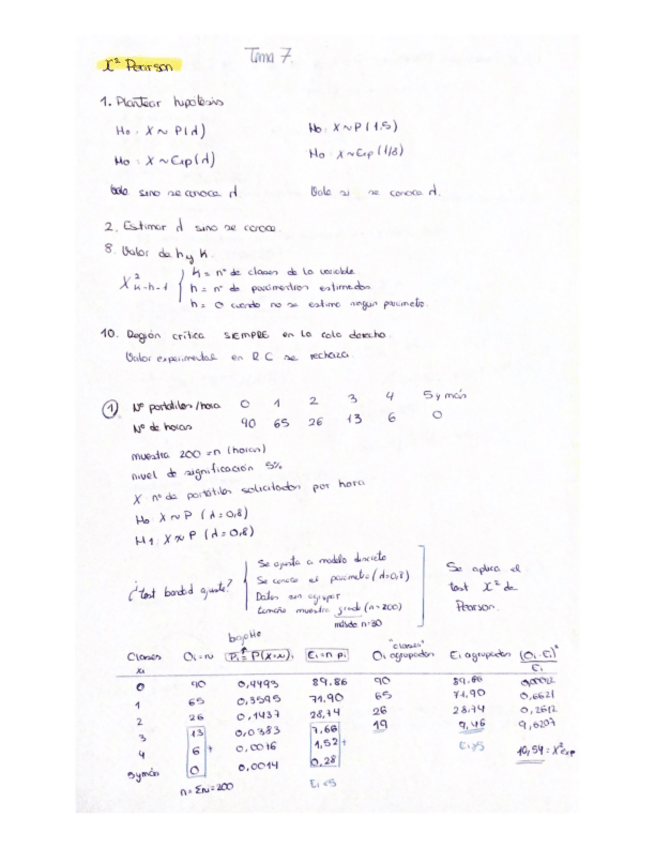 Tema 7.
X² Pearson
1. Plantear hipótesis
Ho: X ~ P(λ) Ho: X ~ P(1.5)
Ho: X ~ Exp(λ) Ho: X ~ Exp(1/8)
Solo sino se conoce λ. Solo si se conoce λ.
2. Estimar λ sino se conoce.
8. Valor de h y k.
X² k-h-1 { k = nº de clases de la variable
h = nº de parámetros estimados
h = 0 cuando no se estima ningún parámetro.
10. Región crítica SIEMPRE en la cola derecha.
Valor experimental en R.C se rechaza.
① Nº portátiles/hora 0 1 2 3 4 5 y más
Nº de horas 90 65 26 13 6 0
muestra 200 = n (horas)
nivel de significación 5%
X: nº de portátiles solicitados por hora
Ho: X ~ P (λ=0,8)
H1: X ≁ P (λ=0,8)
¿Test bondad ajuste?
Se ajusta a modelo discreto
Se conoce el parámetro (λ=0,8)
Datos sin agrupar
Tamaño muestra grande (n=200)
n=30
Se aplica el test X² de Pearson.
bajo Ho
"clases"
Clases xi Oi = ni Pi = P(X=xi) Ei = n·pi Oi agrupados Ei agrupados (Oi-Ei)²/Ei
0 90 0,4493 89.86 90 89.86 0,00022
1 65 0,3595 71.90 65 71,90 0,6621
2 26 0,1437 28,74 26 28.74 0,2612
3 13 0,0383 7,66 19 9,46 9,6207
4 6 + 0,0076 1,52 + Ei≥5 10,54 = X²exp
5 y más 0 0,0014 0,28
n = Σni = 200 Ei<5